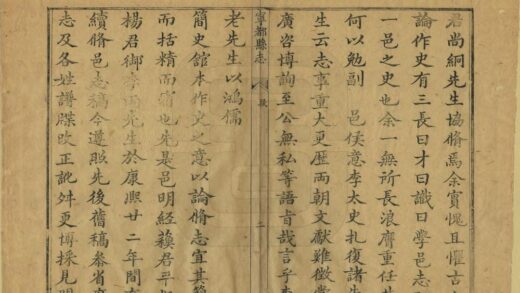 君尚絅先生協脩焉余實愧且懼古
論作史有三長曰才曰識曰學邑志
一邑之史也余一無所長浪膺重任
何以勉副 邑侯意李太史扎復諸
生云志事重大更歷兩朝文獻難徵
廣咨博詢至公無私等語旨哉言乎
寧都縣志 跋 二
老先生以鴻儒
簡史館本作史之意以論脩志宜其
而括精而當也先是邑明經蘓君平
楊君御李兩先生於康熙廿二年間
續脩邑志稿今遵照先後舊稿叅省
志及各姓譜牒改正訛舛更博採見